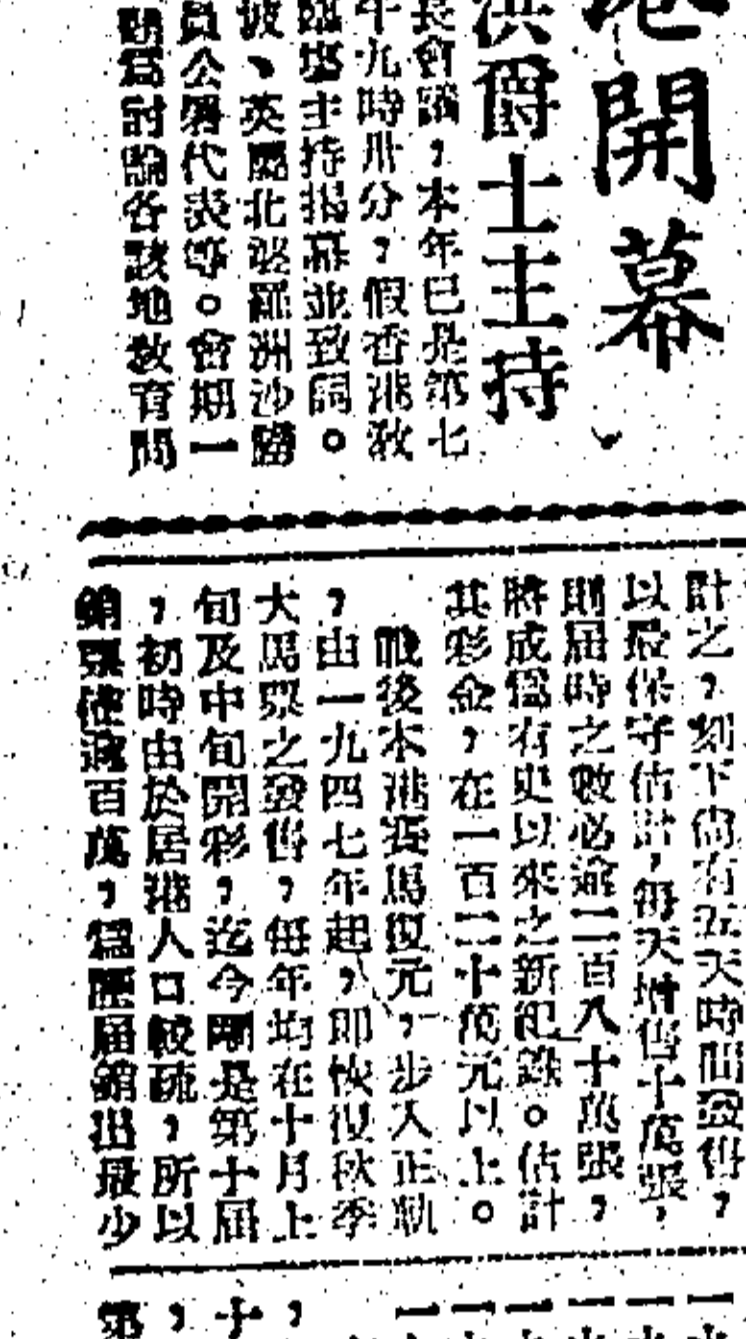 港開幕
洪爵士主持
長會議,本年已是第七
午九時卅分,假香港教
臨塲主持揭幕並致詞。
坡、英屬北婆羅洲沙勝
員公署代表等。會期一
爲討論各該地教育問
計之,刻下尚有五天時間發售,
以最保守估計,每天增售十萬張,
則屆時之數必逾二百八十萬張,
將成爲有史以來之新紀錄。估計
其彩金,在一百二十萬元以上。
戰後本港賽馬復元,步入正軌
,由一九四七年起,即恢復秋季
大馬票之發售,每年均在十月上
旬及中旬開彩,迄今剛是第十屆
,初時由於居港人口較疏,所以
銷票僅逾百萬,爲歷屆銷出最少